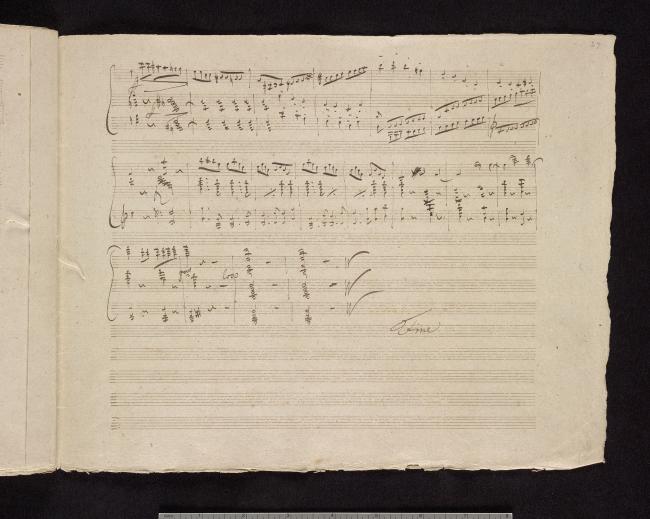 loco
Fine